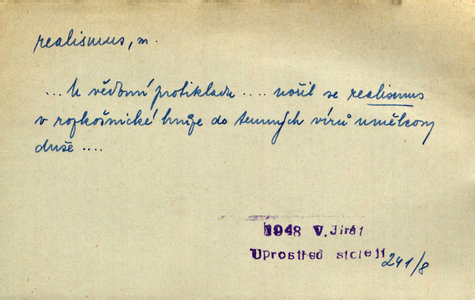 realismus, m.
... k vědomí protikladu .... nořil se realismus
v rozkošnické hrůze do temných vírů umělcovy
duše ....
1948 V. Jirát
Uprostřed století 241/8